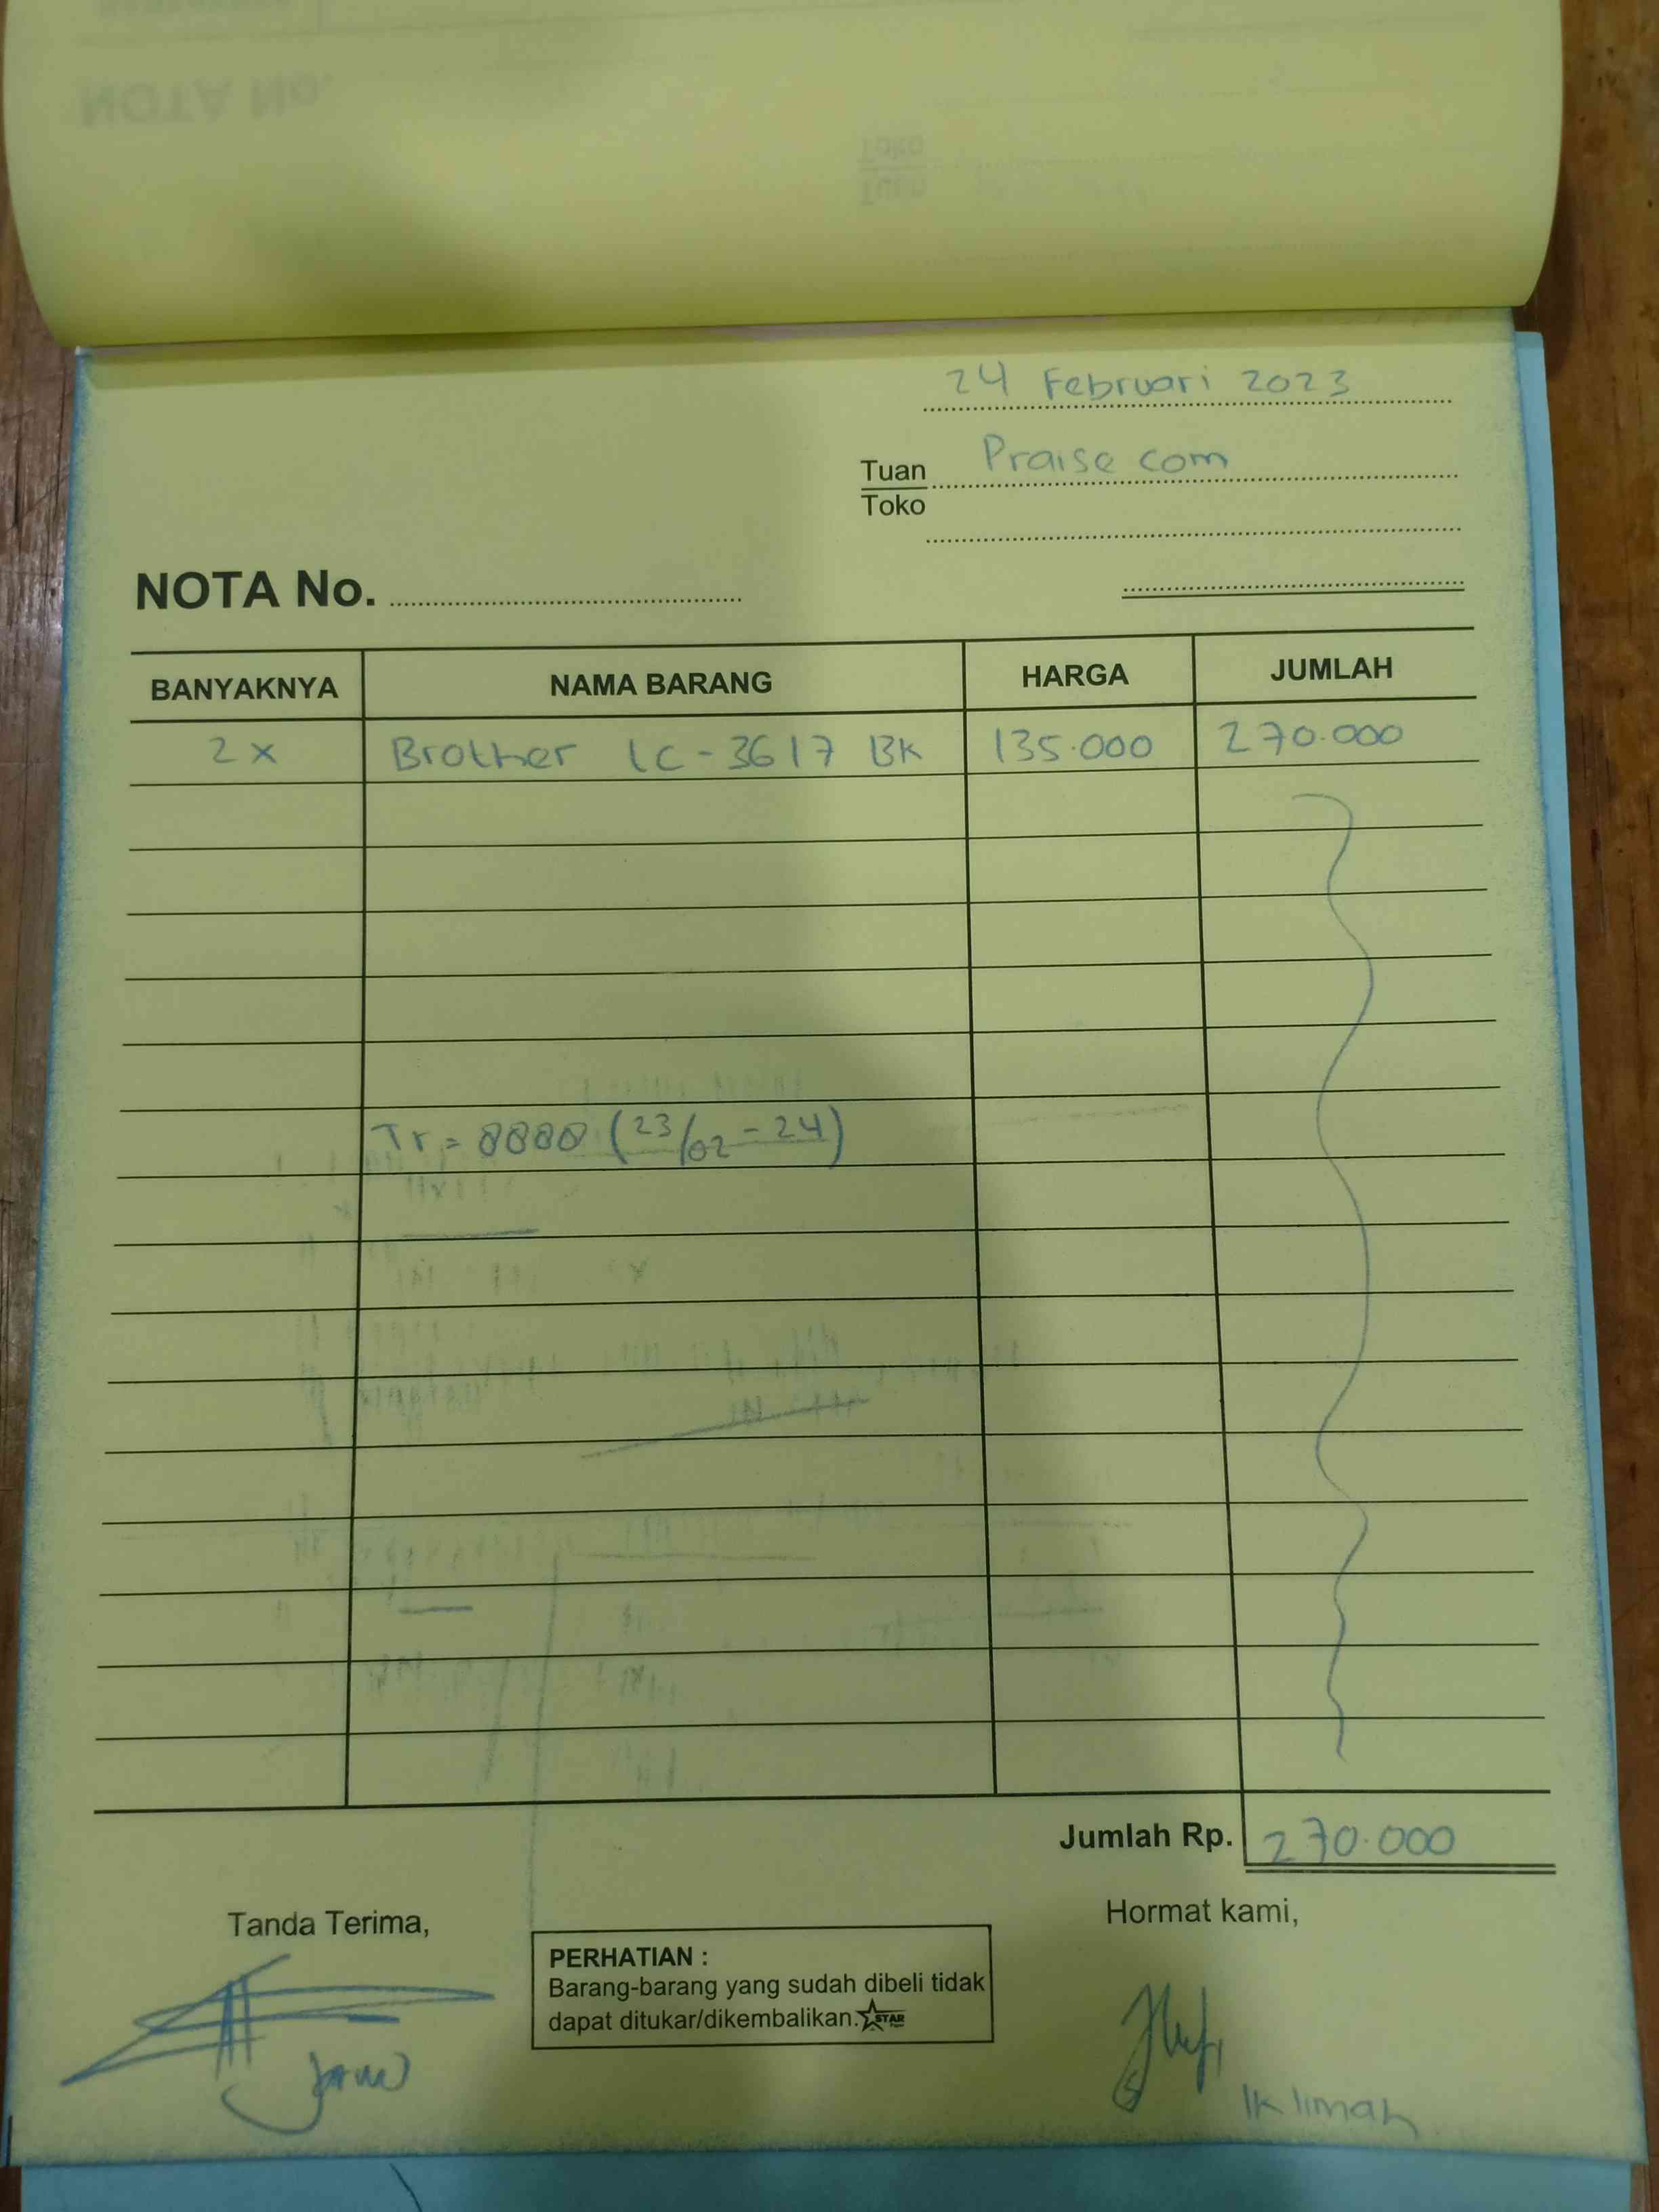 24 Februari 2023
Tuan Praise com
Toko
NOTA No.
BANYAKNYA NAMA BARANG HARGA JUMLAH
2 x Brother LC-3617 BK 135.000 270.000
Tr = 8888 (23/02 - 24)
Jumlah Rp. 270.000
Tanda Terima, Hormat kami,
PERHATIAN :
Barang-barang yang sudah dibeli tidak
dapat ditukar/dikembalikan. STAR
Iklimah